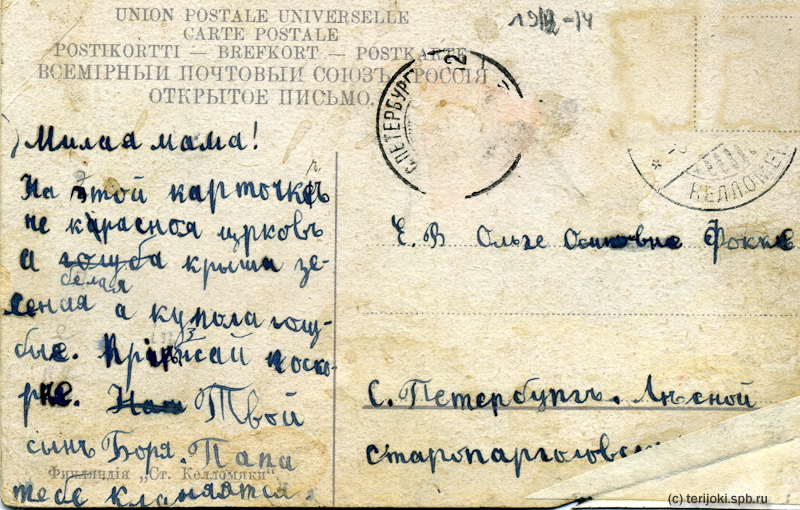 UNION POSTALE UNIVERSELLE
CARTE POSTALE
POSTIKORTTI — BREFKORT — POSTKARTE
ВСЕМІРНЫЙ ПОЧТОВЫЙ СОЮЗЪ. РОССІЯ
ОТКРЫТОЕ ПИСЬМО.
С.ПЕТЕРБУРГ
2
КЕЛЛОМЕ
Милая мама!
На этой карточкѣ
не красной црковъ
а голуба крыша зе-
белая
леная а купола голу-
бые. Пріѣзжай поско-
рѣе. Твой
сынъ Боря. Папа
тебе кланяется.
Финляндія „Ст. Келломяки“
Е. В. Ольге Осиповне Фокке
С. Петербургъ. Лѣсной
старопарголовск
(c) terijoki.spb.ru